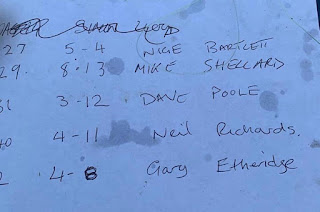 27 5-4 NICE BARTLETT
29. 8:13 MIKE SHELLARD
3-12 DAVE POOLE
4-11 Neil Richards.
4-8 Gary Etheridge